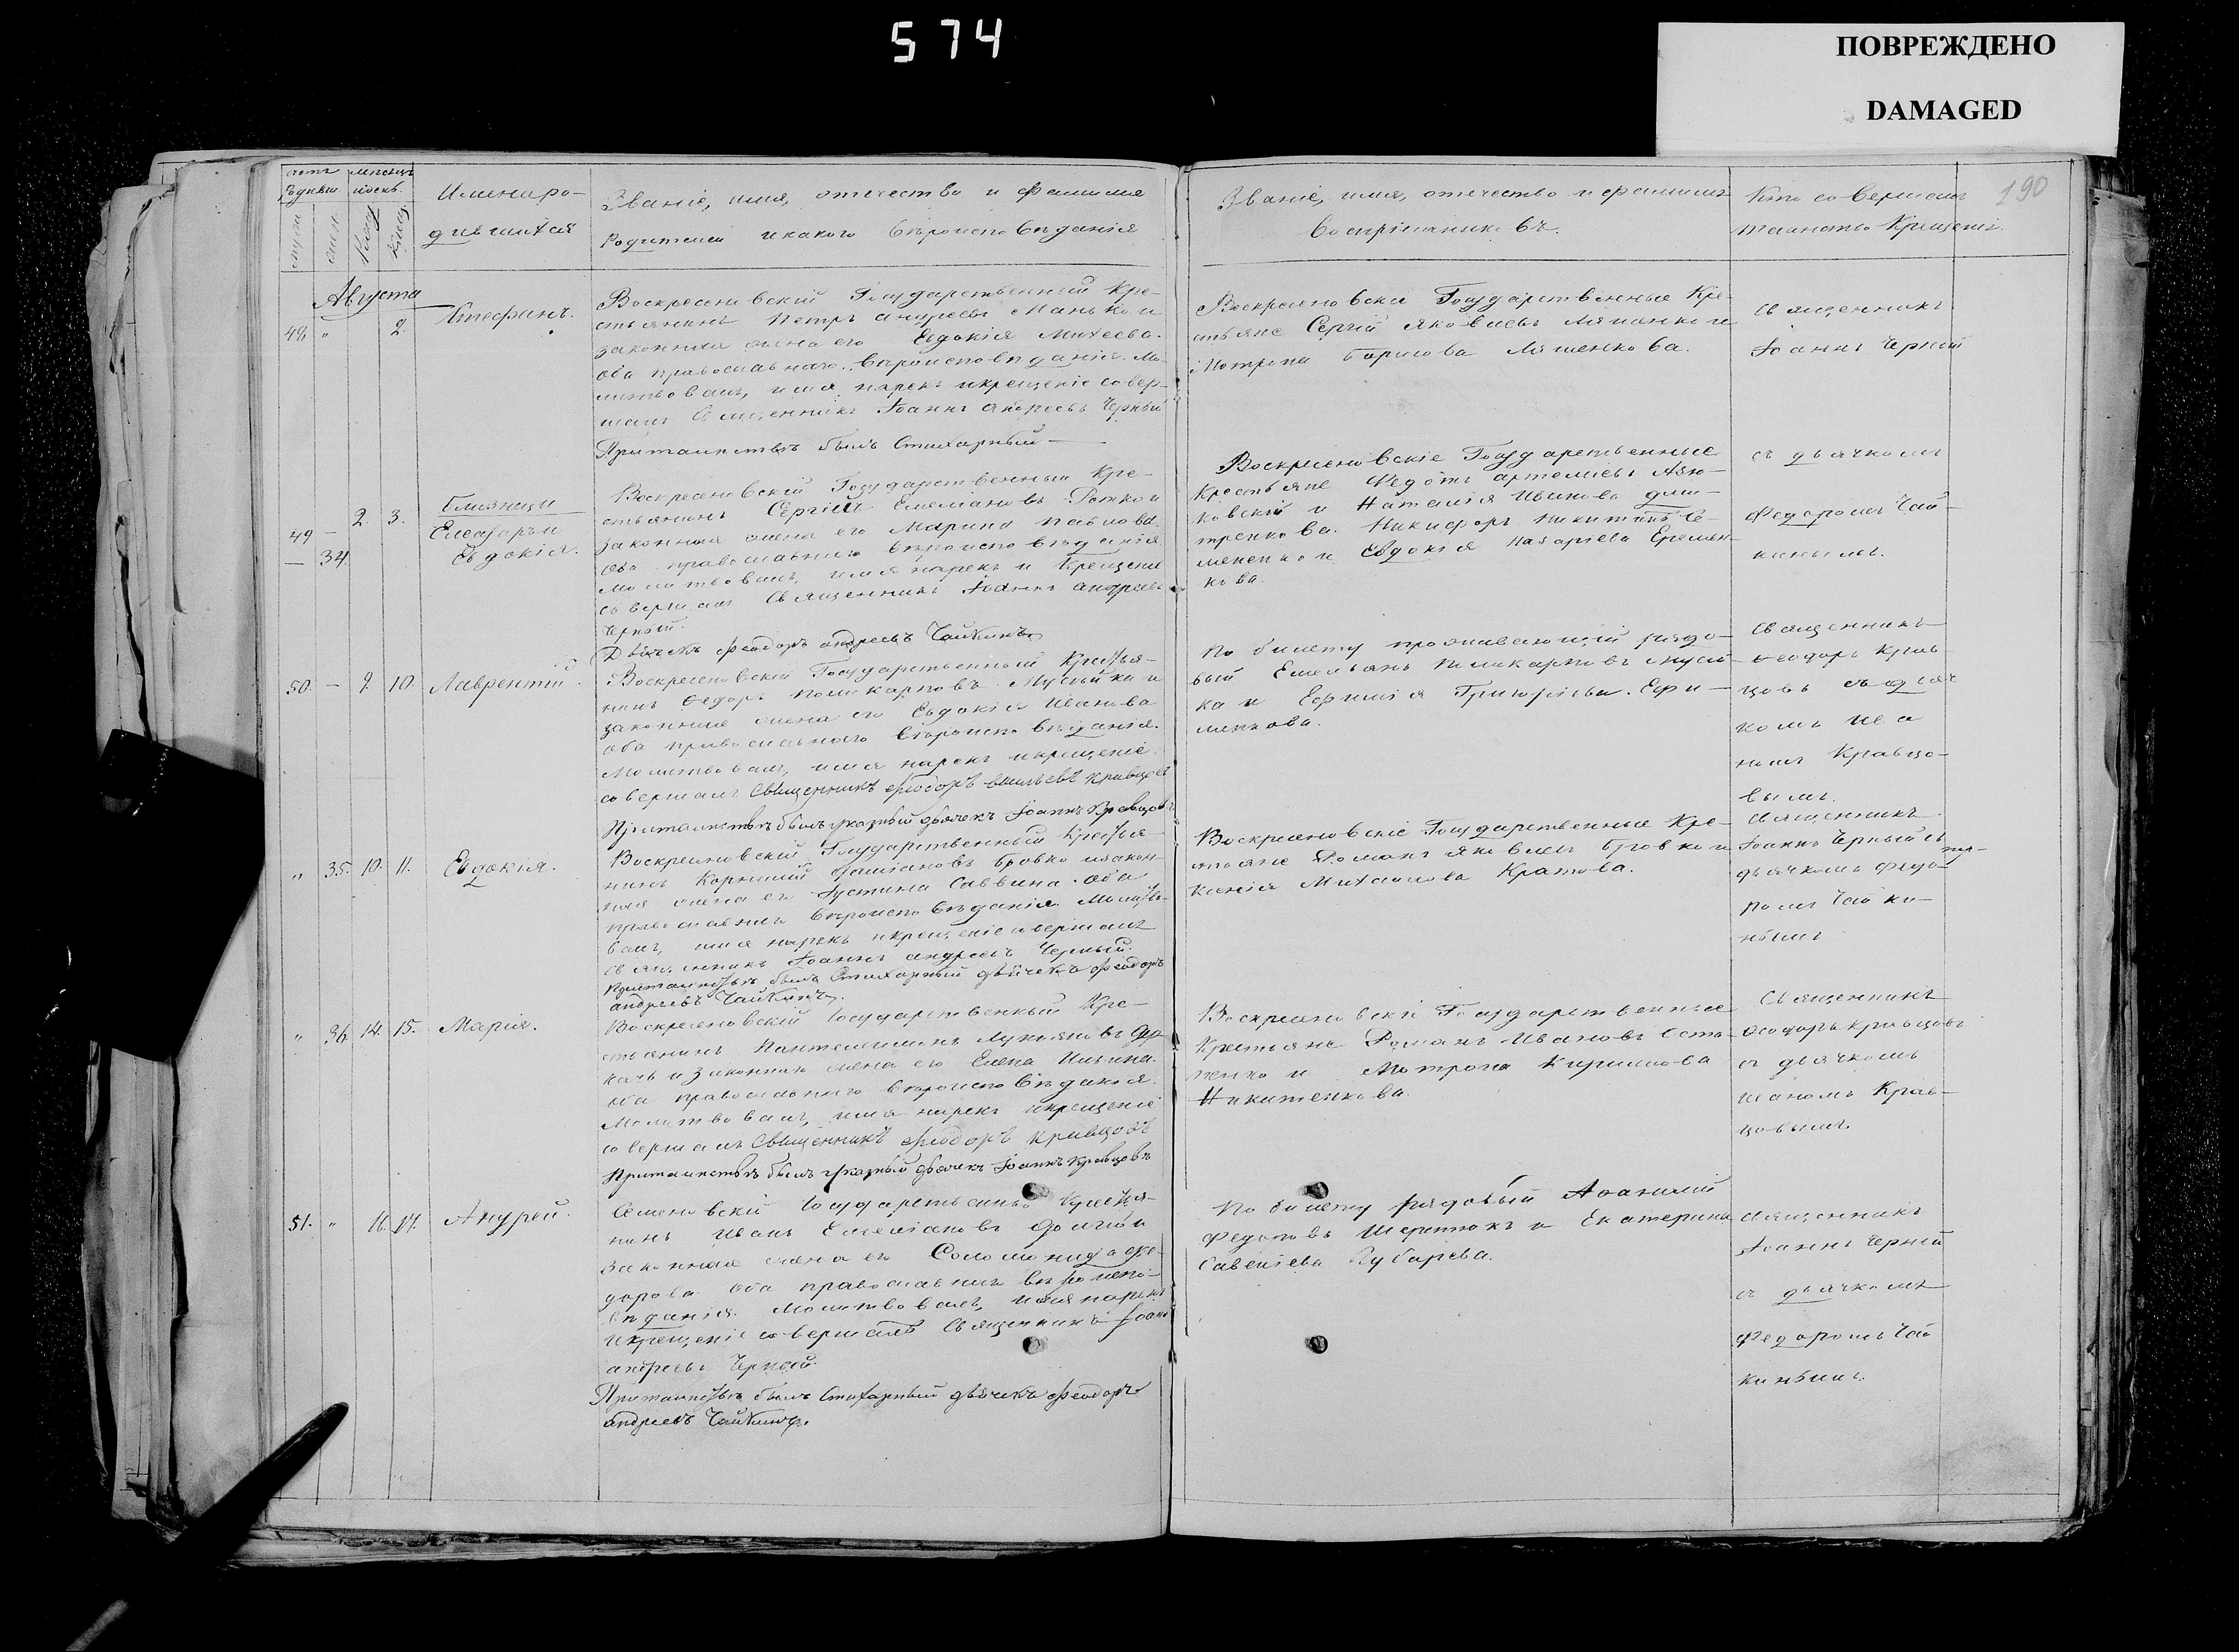 574
ПОВРЕЖДЕНО
DAMAGED
190
Имя наро-
дившихся
Званіе, имя, отчество и фамилия
Родители и какого Вѣроисповѣданія
Званіе, имя, отчество и фамилія
Воспріемниковъ.
Кто совершалъ
таинство Крещенія
Августа
48. " 2.
Стефанъ.
Воскресеновскій Государственный Кре-
стьянинъ Петръ Андреевъ Манько и
законная жена его Евдокія Михеева.
оба православнаго Вѣроисповѣданія. Мо-
литвовалъ, имя нарекъ и крещеніе совер-
шалъ Священникъ Іоаннъ Андреевъ Черный
При таинствѣ былъ Стихарный
Воскресеновскіе Государственные Кре-
стьяне Сергій Яковлевъ и
Мотрона Борисова Ляшенкова.
Священникъ
Іоаннъ Черный
49 — 2. 3.
— 34.
Близнецы
Елеазаръ и
Евдокія.
Воскресеновскій Государственный Кре-
стьянинъ Сергій Емеліановъ и
законная жена его Марина Павлова.
оба православнаго вѣроисповѣданія
молитвовалъ, имя нарекъ и Крещеніе
совершалъ Священникъ Іоаннъ Андреевъ
Черный.
Дьячекъ Феодоръ Андреевъ Чайкинъ
Воскресеновскіе Государственные
Крестьяне Федотъ Артемьевъ
и Наталія Иванова Дми-
тренкова. Никифоръ Никитинъ Се-
мененко и Евдокія Назаріева Еремен-
кова.
съ дьячкомъ
Федоромъ Чай-
кинымъ.
50. — 9. 10. Лаврентій.
Воскресеновскій Государственный Крестья-
нинъ Ѳедоръ Поликарповъ Мусыйка и
законная жена его Евдокія Иванова
оба православнаго Вѣроисповѣданія.
Молитвовалъ, имя нарекъ и крещеніе
совершалъ Священникъ Феодоръ Васильевъ Кравцовъ
При таинствѣ былъ указный дьячекъ Іоаннъ Кравцовъ
По билету проживающій рядо-
вый Емельянъ Поликарповъ Мусій-
ка и Ефимія Григорьева Ефи-
менкова.
Священникъ
Ѳеодоръ Крав-
цовъ съ дьяч
комъ Иоа
номъ Кравцо-
вымъ.
" 35. 10. 11. Евдокія.
Воскресеновскій Государственный Крестья-
нинъ Корнилій Бровко и закон-
ная жена его Іустина Саввина. оба
православнаго вѣроисповѣданія. Молитво-
валъ, имя нарекъ и крещеніе совершалъ
Священникъ Іоаннъ Андреевъ Черный.
При таинствѣ былъ Стихарный дьячекъ Феодоръ
Андреевъ Чайкинъ.
Воскресеновскіе Государственные Кре-
стьяне Романъ Яковлевъ Бровко и
Ксенія Михайлова Кратова.
Священникъ
Іоаннъ Черный съ
дьячкомъ Федо-
ромъ Чайки-
нымъ
" 36. 14. 15. Марія.
Воскресеновскій Государственный Кре-
стьянинъ Пантелеимонъ Лукьяновъ Дер-
качъ и законная жена его Елена Ильина.
оба православнаго вѣроисповѣданія.
Молитвовалъ, имя нарекъ и крещеніе
совершалъ Священникъ Феодоръ Кравцовъ
При таинствѣ былъ указный дьячекъ Іоаннъ Кравцовъ
Воскресеновскіе Государственные
Крестьяне Романъ Ивановъ Оста-
пенко и Мотрона Кирилова
Никитенкова.
Священникъ
Ѳеодоръ Кравцовъ
съ дьячкомъ
Іоаномъ Крав-
цовымъ.
51. " 16. 17. Андрей
Семеновскій Государственный Крестья-
нинъ Иванъ Емеліановъ Долгій и
законная жена его Соломонида Фе-
дорова оба православнаго вѣроиспо-
вѣданія. Молитвовалъ, имя нарекъ
и крещеніе совершалъ Священникъ Іоаннъ
Андреевъ Черный.
При таинствѣ былъ Стихарный дьячекъ Феодоръ
Андреевъ Чайкинъ.
По билету рядовый Аѳанасій
Федотовъ и Екатерина
Савеліева Зубарева.
Священникъ
Іоаннъ Черный
съ дьячкомъ
Федоромъ Чай
кинымъ.